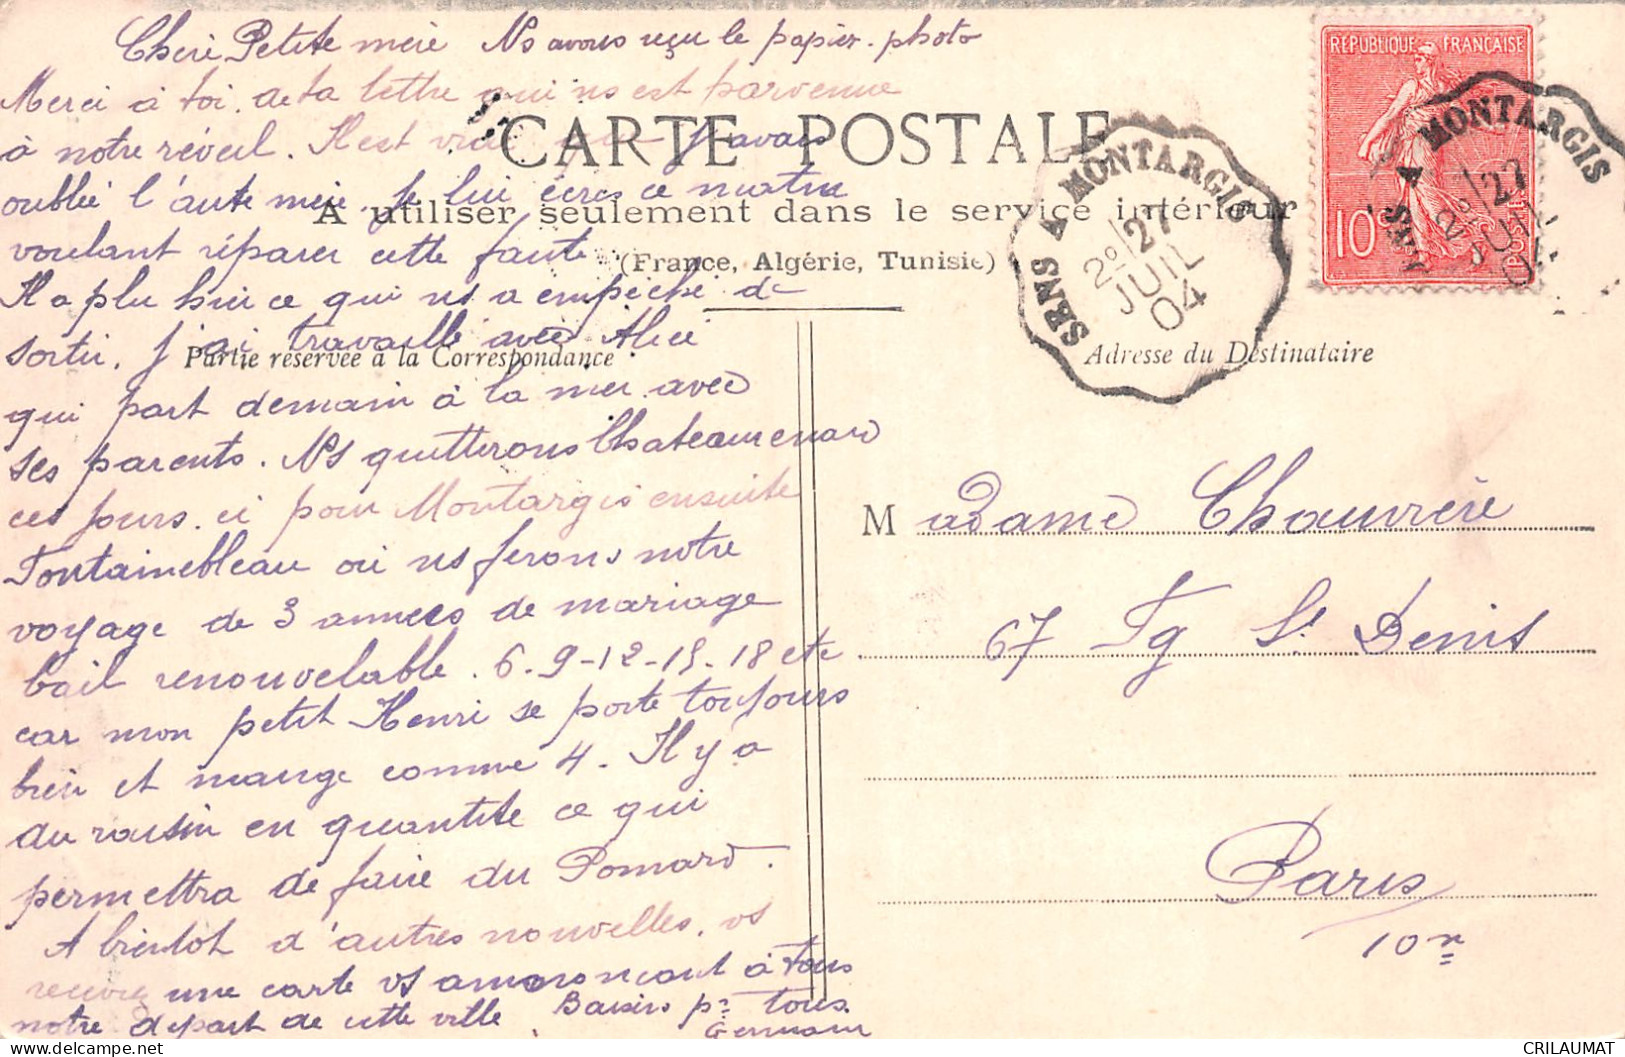 Cheri Petite mère Ns avons reçu le papier-photo
Merci à toi, de ta lettre qui ns est parvenue
à notre réveil. Il est vrai que j'avais
oublié l'autre mère. Je lui écris ce matin
voulant réparer cette faute
Il a plu hier ce qui ns a empêché de
sortir. J'ai travaillé avec Alice
qui part demain à la mer avec
ses parents. Ns quitterons Chateaurenard
ces jours-ci pour Montargis ensuite
Fontainebleau où ns ferons notre
voyage de 3 années de mariage
bail renouvelable. 6-9-12-15-18 etc
car mon petit Henri se porte toujours
bien et mange comme 4. Il y a
du raisin en quantité ce qui
permettra de faire du Pomard.
A bientôt d'autres nouvelles, vs
recevrez une carte vs annonçant à tous
notre départ de cette ville. Baisers pr tous.
Germain
CARTE POSTALE
A utiliser seulement dans le service intérieur
(France, Algérie, Tunisie)
Partie réservée à la Correspondance
Adresse du Destinataire
SENS A MONTARGIS
2º/27
JUIL
04
REPUBLIQUE FRANÇAISE
10c
POSTES
SENS A MONTARGIS
2º/27
JUIL
04
Madame Chauvière
67 Fg St Denis
Paris
10e
CRILAUMAT